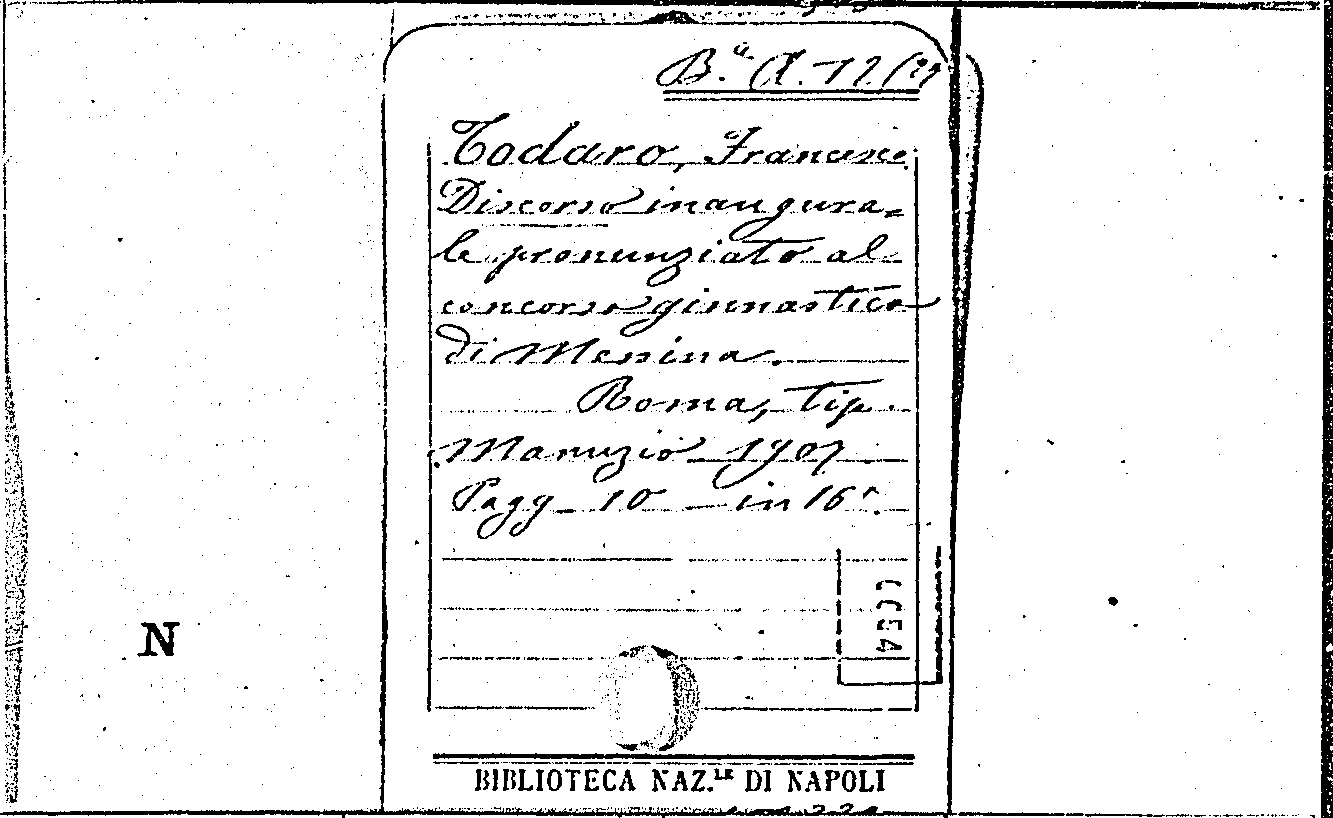 B.ª A. 12 (29
Todaro, Francesco.
Discorso inaugura=
le pronunziato al
concorso ginnastico
di Messina.
Roma, tip.
Manuzio 1907
Pagg 10 in 16°.
N
0054
BIBLIOTECA NAZ.LE DI NAPOLI